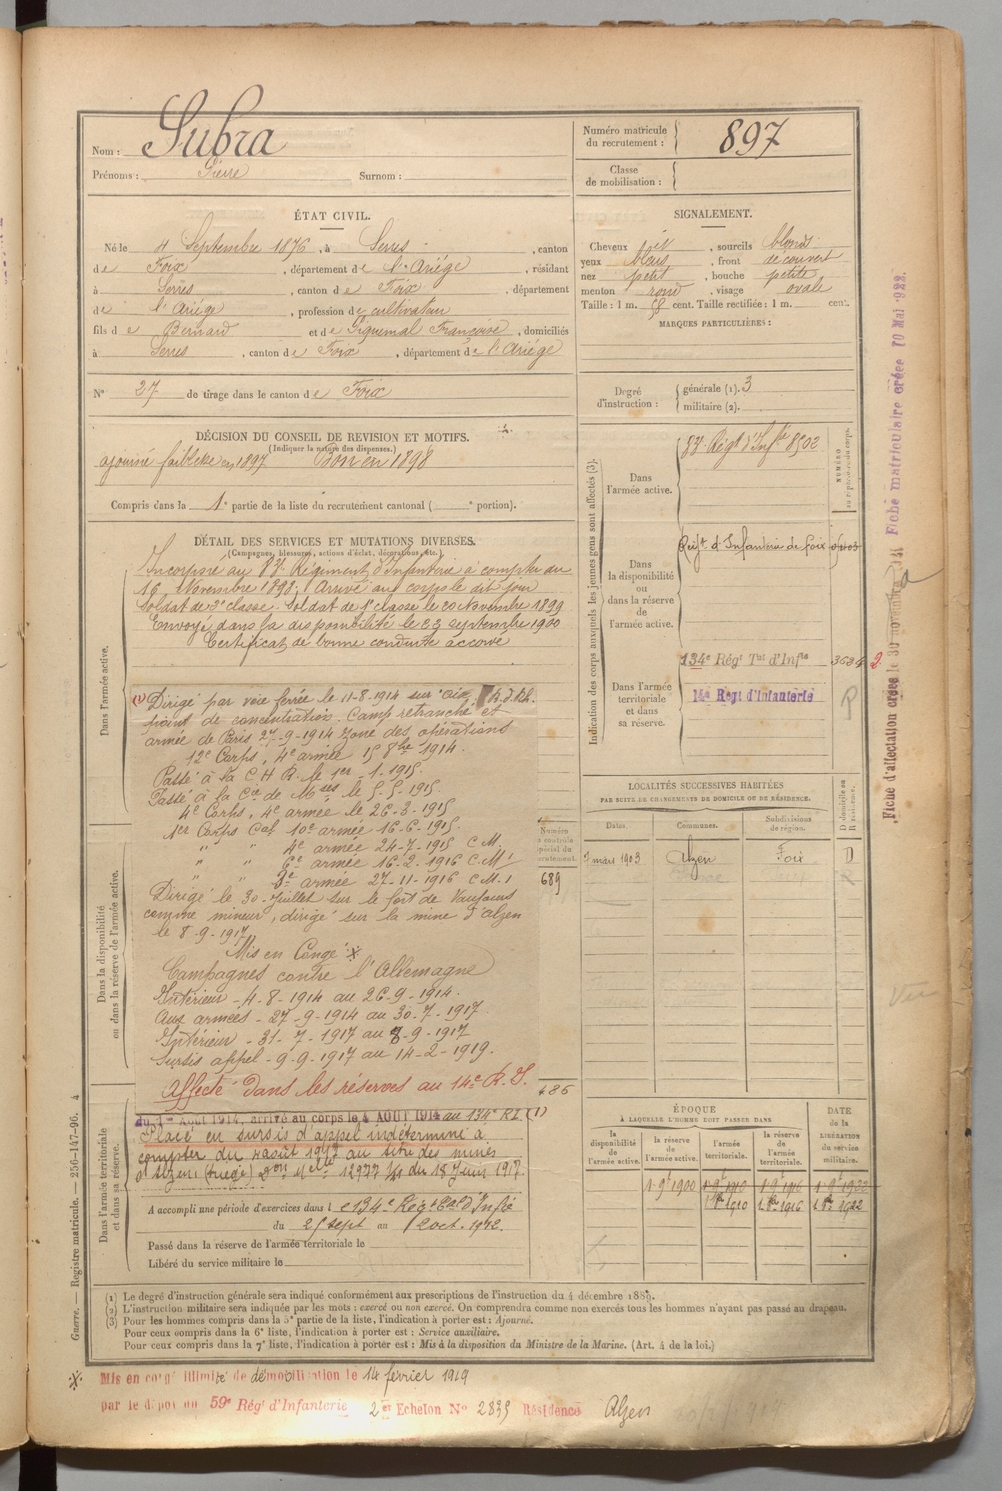 Nom : Subra
Prénoms : Pierre Surnom :
Numéro matricule du recrutement : 897
Classe de mobilisation :
ÉTAT CIVIL.
Né le 4 Septembre 1876, à Serres, canton
de Foix, département de l'Ariège, résidant
à Serres, canton de Foix, département
de l'Ariège, profession de cultivateur
fils de Bernard et de Piquemal Françoise, domiciliés
à Serres, canton de Foix, département de l'Ariège
N° 27 de tirage dans le canton de Foix
SIGNALEMENT.
Cheveux , sourcils blonds
yeux bleus, front découvert
nez petit, bouche petite
menton rond, visage ovale
Taille : 1 m. 58 cent. Taille rectifiée : 1 m. cent.
MARQUES PARTICULIÈRES :
Degré d'instruction : générale (1). 3
militaire (2).
DÉCISION DU CONSEIL DE REVISION ET MOTIFS.
(Indiquer la nature des dispenses.)
ajourné faiblesse en 1897 Bon en 1898
Compris dans la 1e partie de la liste du recrutement cantonal ( e portion).
DÉTAIL DES SERVICES ET MUTATIONS DIVERSES.
(Campagnes, blessures, actions d'éclat, décorations, etc.)
Dans l'armée active.
Incorporé au 83e Régiment d'Infanterie à compter du
16 Novembre 1898, Arrivé au corps le dit jour
Soldat de 2e classe. Soldat de 1e classe le 20 Novembre 1899
Envoyé dans la disponibilité le 23 septembre 1900
Certificat de bonne conduite accordé
(1) Dirigé par voie ferrée le 11-8-1914 sur
point de concentration. Camp retranché et
armée de Paris 27-9-1914 zone des opérations
12e Corps, 4e armée 15 8bre 1914.
Passé à la C H R. le 1er-1-1915.
Passé à la Cie de Mses le 5-5-1915.
4e Corps, 4e armée le 26-3-1915
1er Corps Cal 10e armée 16-6-1915.
" " 4e armée 24-7-1915 C M.
" " 6e armée 16-2-1916 C.M1
" " 3e armée 27-11-1916 C.M.1
Dirigé le 30-Juillet sur le fort de Vaujours
comme mineur, dirigé sur la mine d'Alzen
le 8-9-1917
Mis en Congé
Campagnes contre l'Allemagne
Intérieur - 4-8-1914 au 26-9-1914.
Aux armées - 27-9-1914 au 30-7-1917.
Intérieur - 31-7-1917 au 8-9-1917
Sursis appel - 9-9-1917 au 14-2-1919.
Affecté dans les réserves au 14e R.I.
Dans la disponibilité ou dans la réserve de l'armée active.
689
Dans l'armée territoriale et dans sa réserve.
Août 1914, arrivé au corps le 4 AOUT 1914 au 134e R.I. (1)
Placé en sursis d'appel indéterminé à
compter du 4 août 1917 au titre des mines
d'Alzen (Ariège) 12977 du 18 Juin 1917.
A accompli une période d'exercices dans le 134e Régt Eal d'Infie
du 25 sept au oct. 1912.
Passé dans la réserve de l'armée territoriale le
Libéré du service militaire le
Indication des corps auxquels les jeunes gens sont affectés (3).
Dans l'armée active. 83e Régt d'Infie 8502
Dans la disponibilité ou dans la réserve de l'armée active. Régt d'Infanterie de Foix
Dans l'armée territoriale et dans sa réserve. 134e Régt Tal d'Infie
14e Régt d'Infanterie
LOCALITÉS SUCCESSIVES HABITÉES
PAR SUITE DE CHANGEMENTS DE DOMICILE OU DE RÉSIDENCE.
Dates. Communes. Subdivisions de région. D domicile ou R résidence.
mars 1903 Alzen Foix D
ÉPOQUE
À LAQUELLE L'HOMME DOIT PASSER DANS
la disponibilité de l'armée active. la réserve de l'armée active. l'armée territoriale. la réserve de l'armée territoriale.
DATE DE LA LIBÉRATION DU service militaire.
1 9e 1900 1 9e 1910 1 9e 1916 1 9e 1922
1910 1916 1922
Fiche d'affectation créée le 30 novembre
Fiche matriculaire créée 10 Mai 1922.
Guerre. — Registre matricule. — 256-147-96. 4
(1) Le degré d'instruction générale sera indiqué conformément aux prescriptions de l'instruction du 4 décembre 1889.
(2) L'instruction militaire sera indiquée par les mots : exercé ou non exercé. On comprendra comme non exercés tous les hommes n'ayant pas passé au drapeau.
(3) Pour les hommes compris dans la 5e partie de la liste, l'indication à porter est : Ajourné.
Pour ceux compris dans la 6e liste, l'indication à porter est : Service auxiliaire.
Pour ceux compris dans la 7e liste, l'indication à porter est : Mis à la disposition du Ministre de la Marine. (Art. 4 de la loi.)
Mis en congé illimité de démobilisation le 14 février 1919
par le dépôt du 59e Régt d'Infanterie 2er Echelon N° 2835 Résidence Alzen